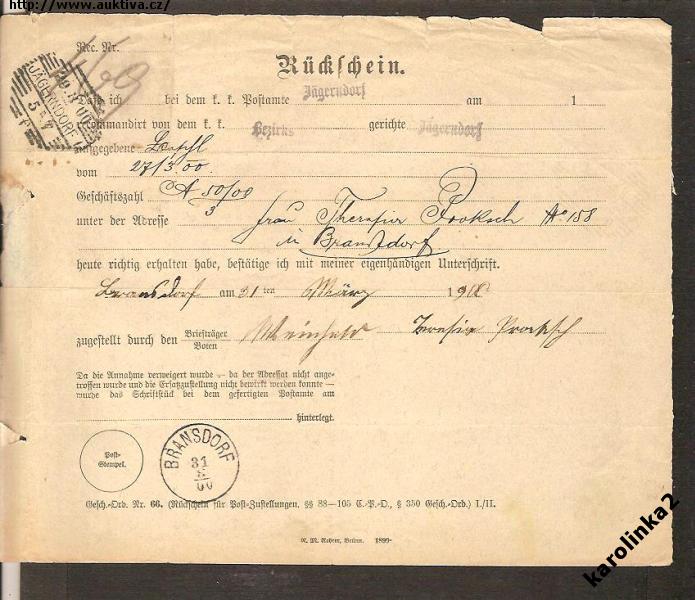 http://www.auktiva.cz/
Rec. Nr.
Rückschein.
JÄGERNDORF
Daß ich bei dem k. k. Postamte Jägerndorf am 1
recommandirt von dem k. k. Bezirks gerichte Jägerndorf
aufgegebene
vom 27/3 00
Geschäftszahl A 50/00
3
unter der Adresse Frau Proksch No 158
in Bransdorf
heute richtig erhalten habe, bestätige ich mit meiner eigenhändigen Unterschrift.
Bransdorf am 31 ten März 19
zugestellt durch den Briefträger
Boten
Proksch
Da die Annahme verweigert wurde – da der Adressat nicht ange-
troffen wurde und die Ersatzzustellung nicht bewirkt werden konnte –
wurde das Schriftstück bei dem gefertigten Postamte am
hinterlegt.
Post-
Stempel.
BRANSDORF
31
3
00
Gesch.-Ord. Nr. 66. (Rückschein für Post-Zustellungen, §§ 88—105 C.-P.-O., § 350 Gesch.-Ord.) I./II.
R. M. Rohrer, Brünn. 1899
karolinka2